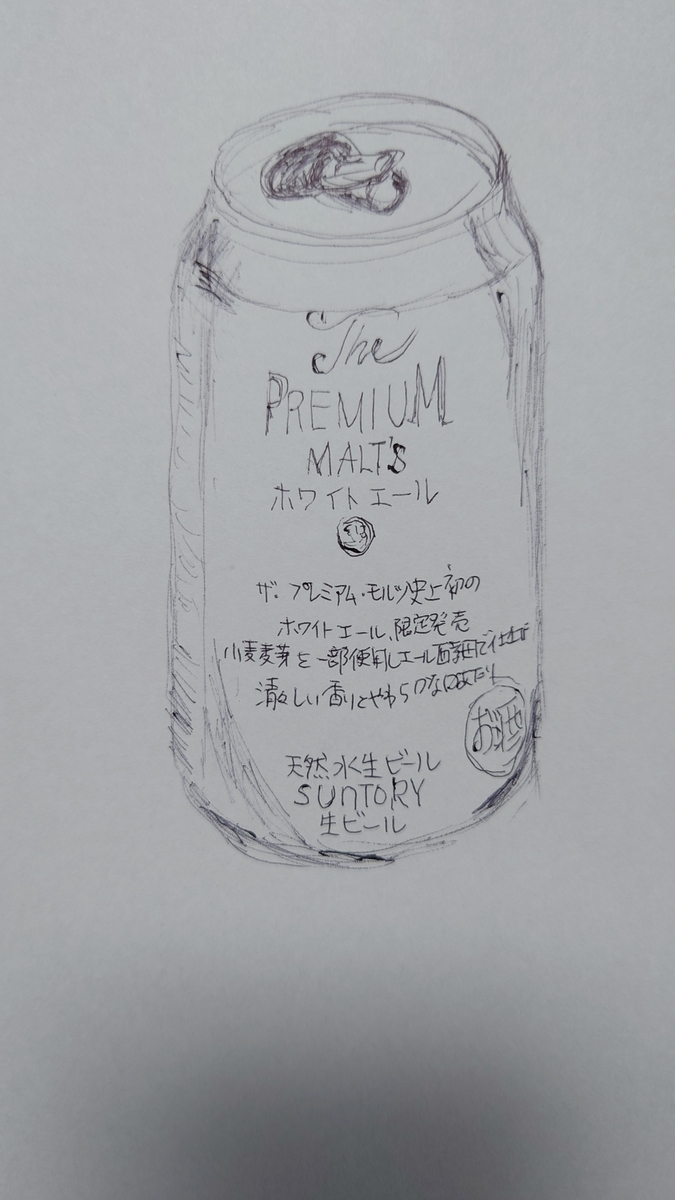 The
PREMIUM
MALT'S
ホワイトエール
ザ・プレミアム・モルツ史上初の
ホワイトエール、限定発売
小麦麦芽を一部使用しエール酵母で仕上げ
清々しい香りとやわらかな口あたり
お酒
天然水生ビール
SUNTORY
生ビール